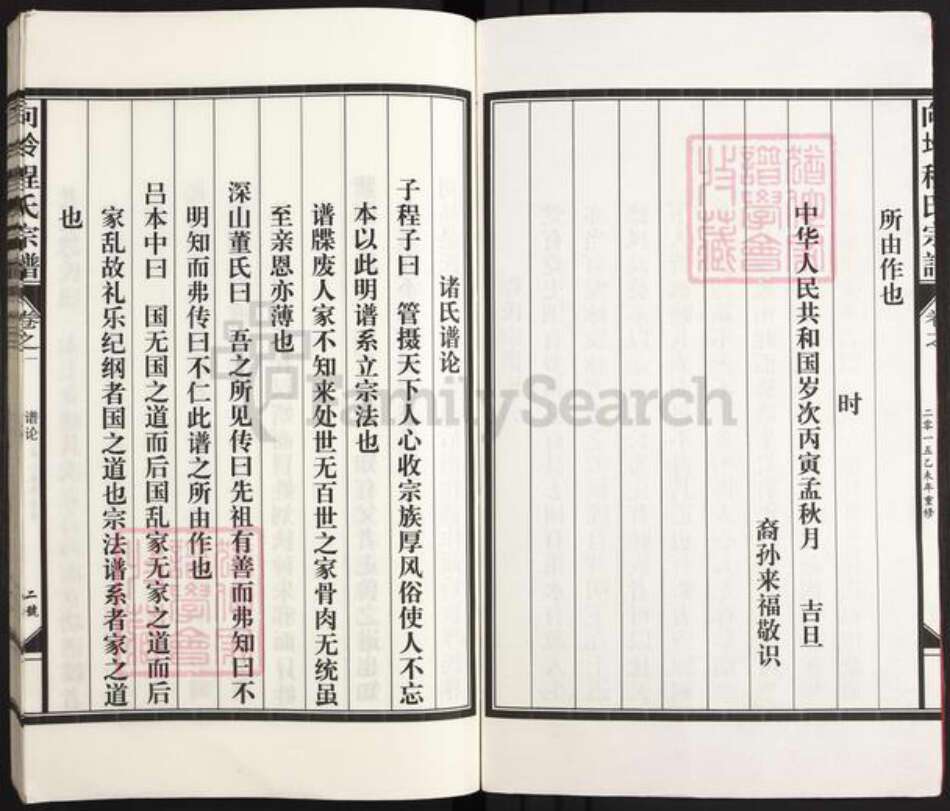 所由作也
时
中华人民共和国岁次丙寅孟秋月 吉旦
裔孙来福敬识
二零一五乙未年重修
诸氏谱论
子程子曰 管摄天下人心收宗族厚风俗使人不忘
本以此明谱系立宗法也
谱牒废人家不知来处世无百世之家骨肉无统虽
至亲恩亦薄也
深山董氏曰 吾之所见传曰先祖有善而弗知曰不
明知而弗传曰不仁此谱之所由作也
吕本中曰 国无国之道而后国乱家无家之道而后
家乱故礼乐纪纲者国之道也宗法谱系者家之道
也
程氏宗谱
卷之一
谱论
二號
FamilySearch